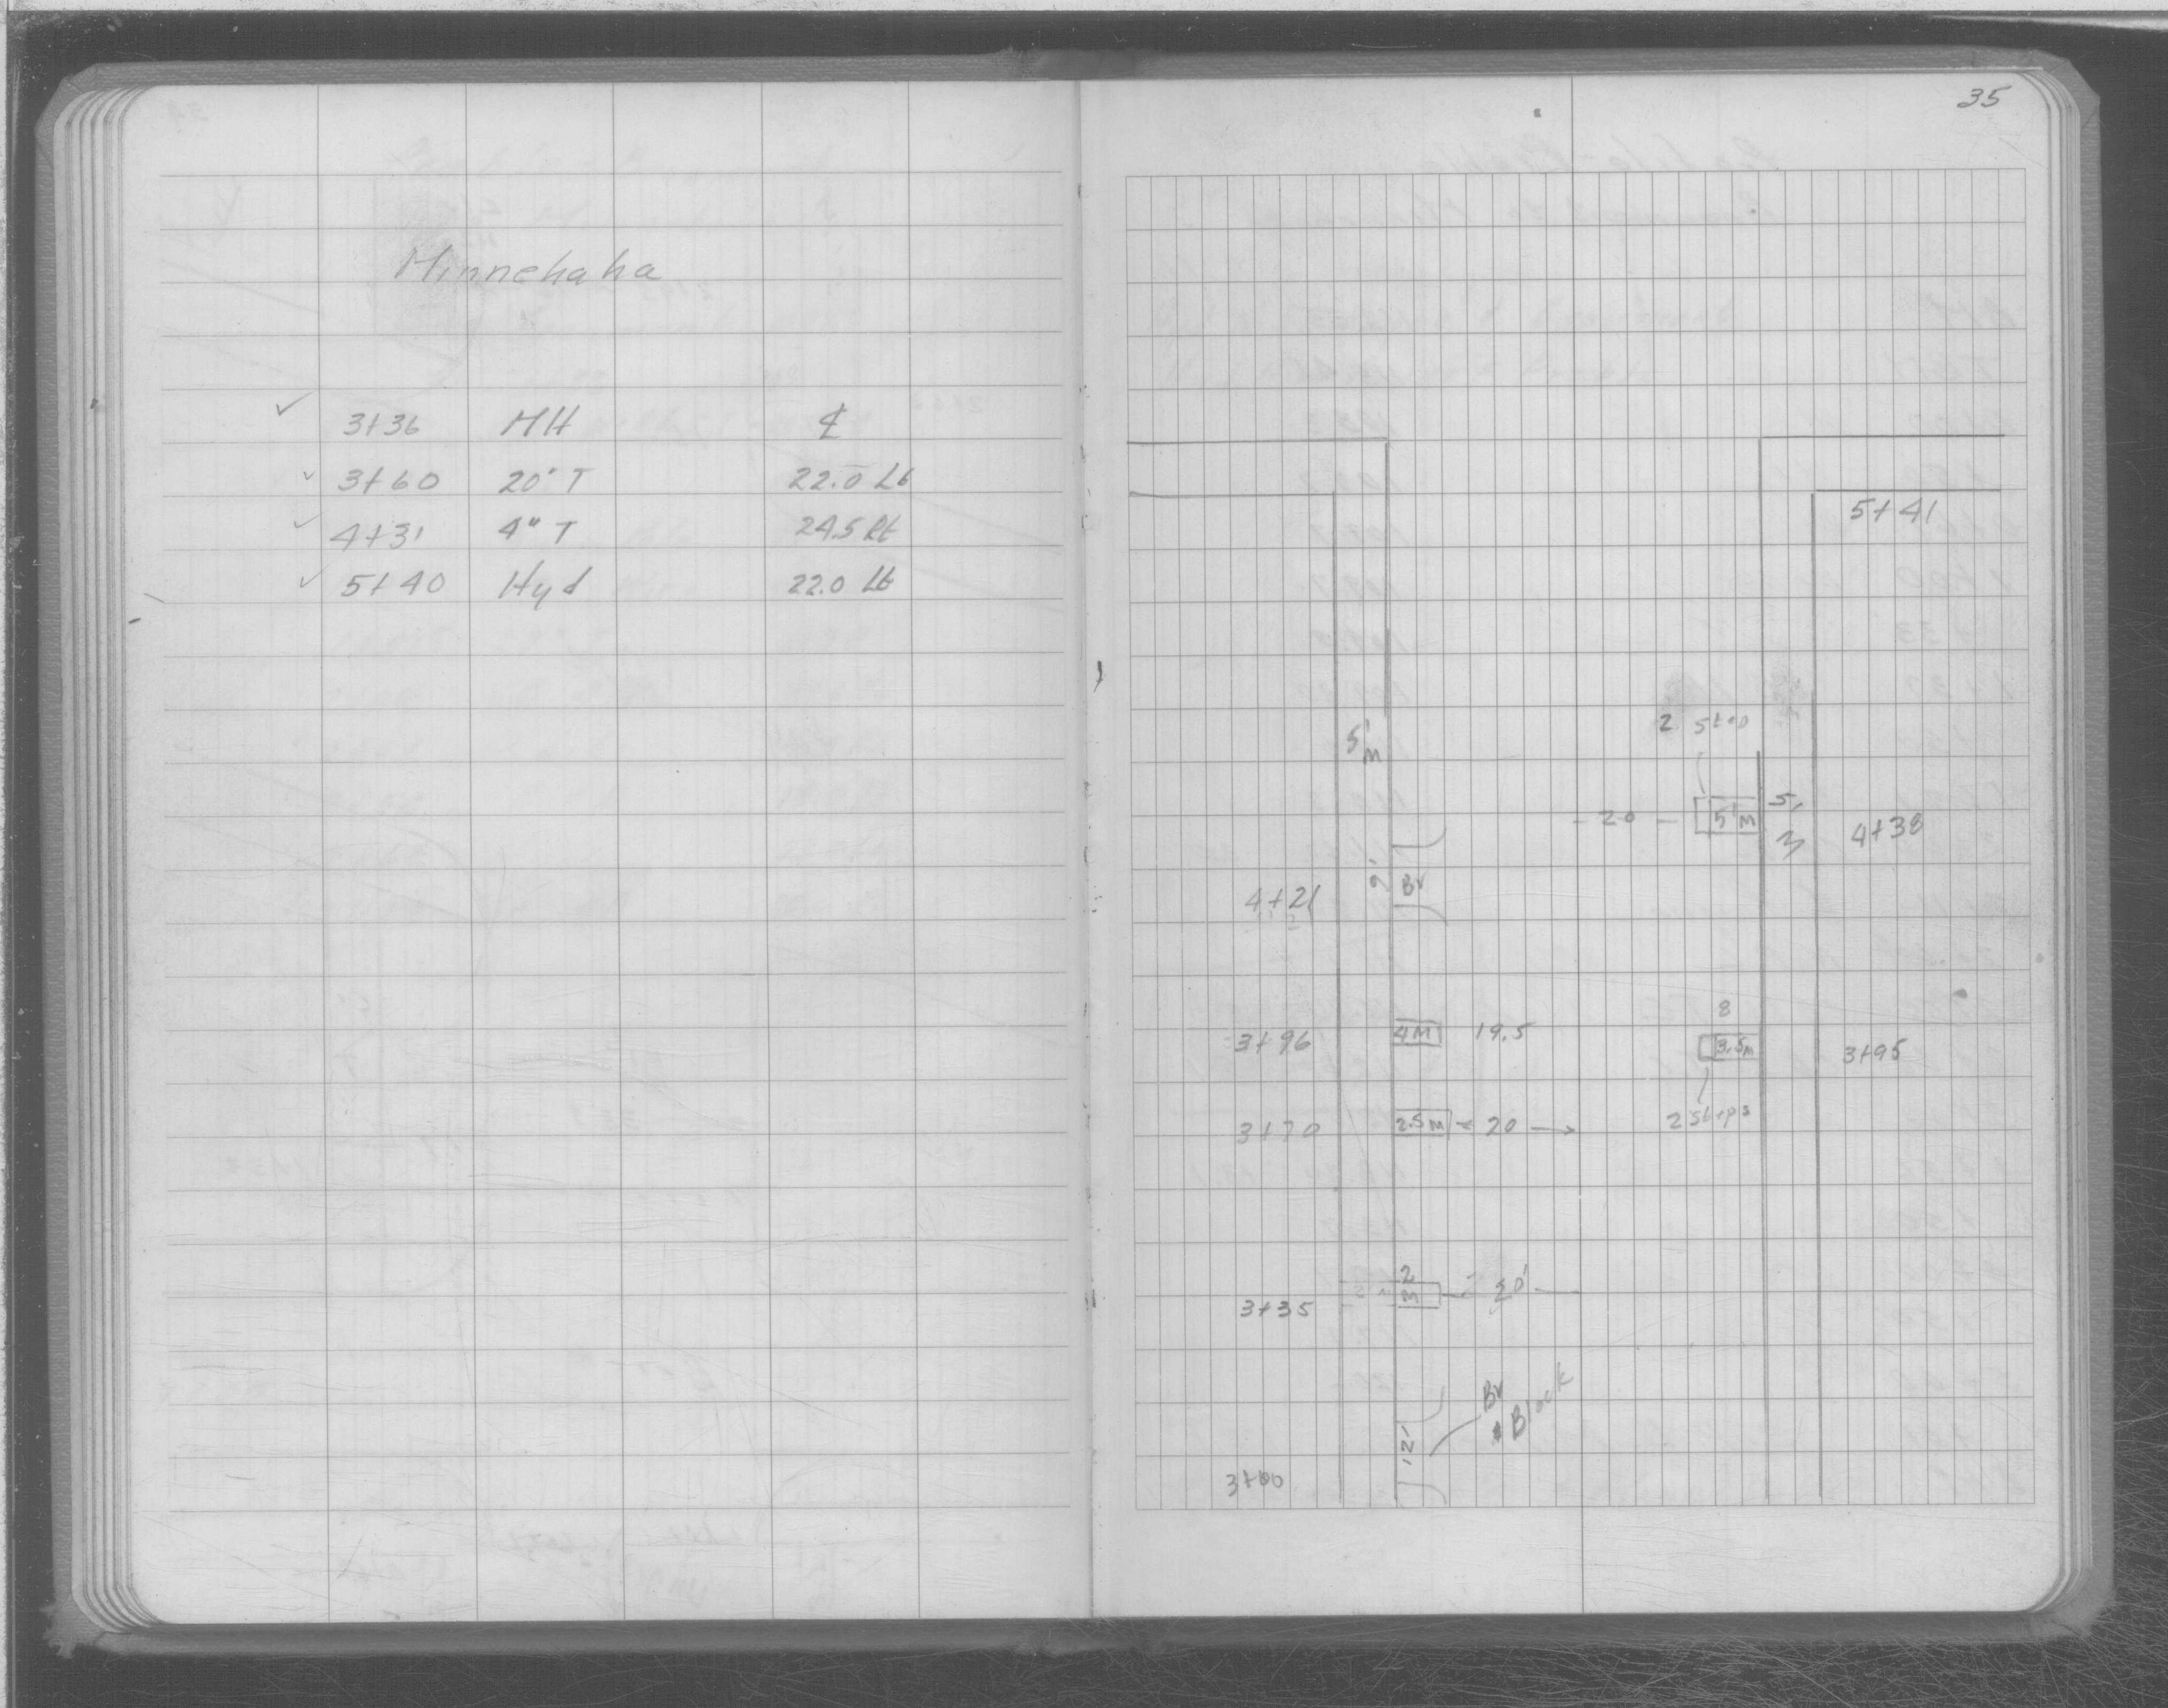 Minnehaha
✓ 3+36 MH ℄
✓ 3+60 20" T 22.0 Lt
✓ 4+31 4" T 24.5 Rt
✓ 5+40 Hyd 22.0 Lt
35
5+41
2 step
5' M
- 20 - 5' M 5' M 4+38
4+21 9' Br
8
3+96 4M 19.5 3.5M 3+95
3+70 2.5M 20 2 Steps
2
3+35 M 20'
Br
& Block
12'
3+00